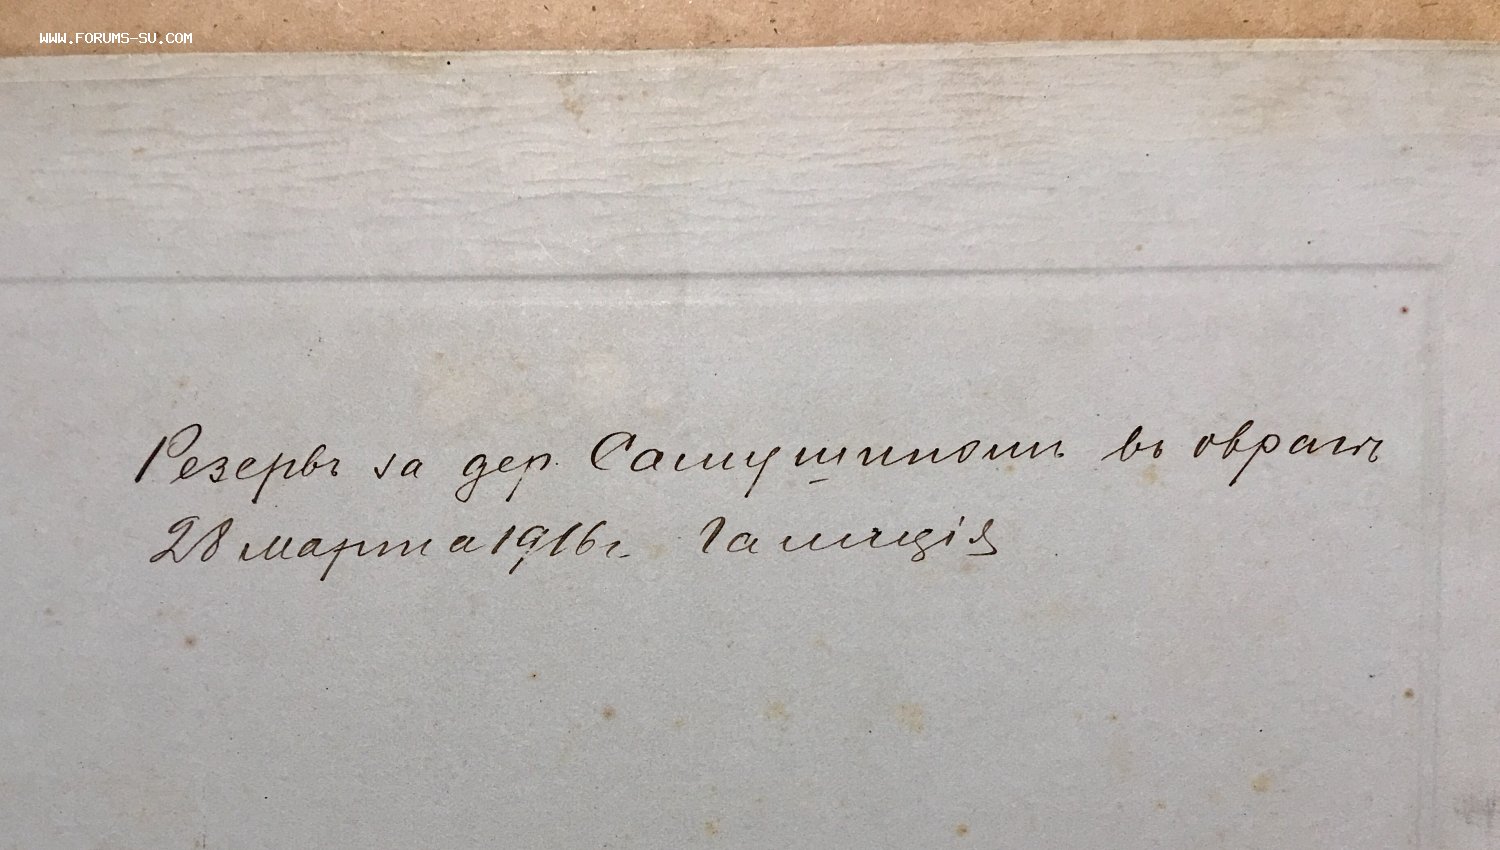 WWW.FORUMS-SU.COM
Резервъ за дер. Самушиномъ въ оврагѣ
28 марта 1916 г. Галиція